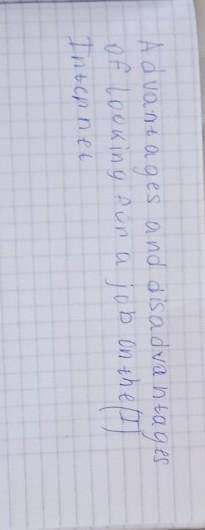 Advantages and disadvantages
of looking for a job on the (I)
Internet